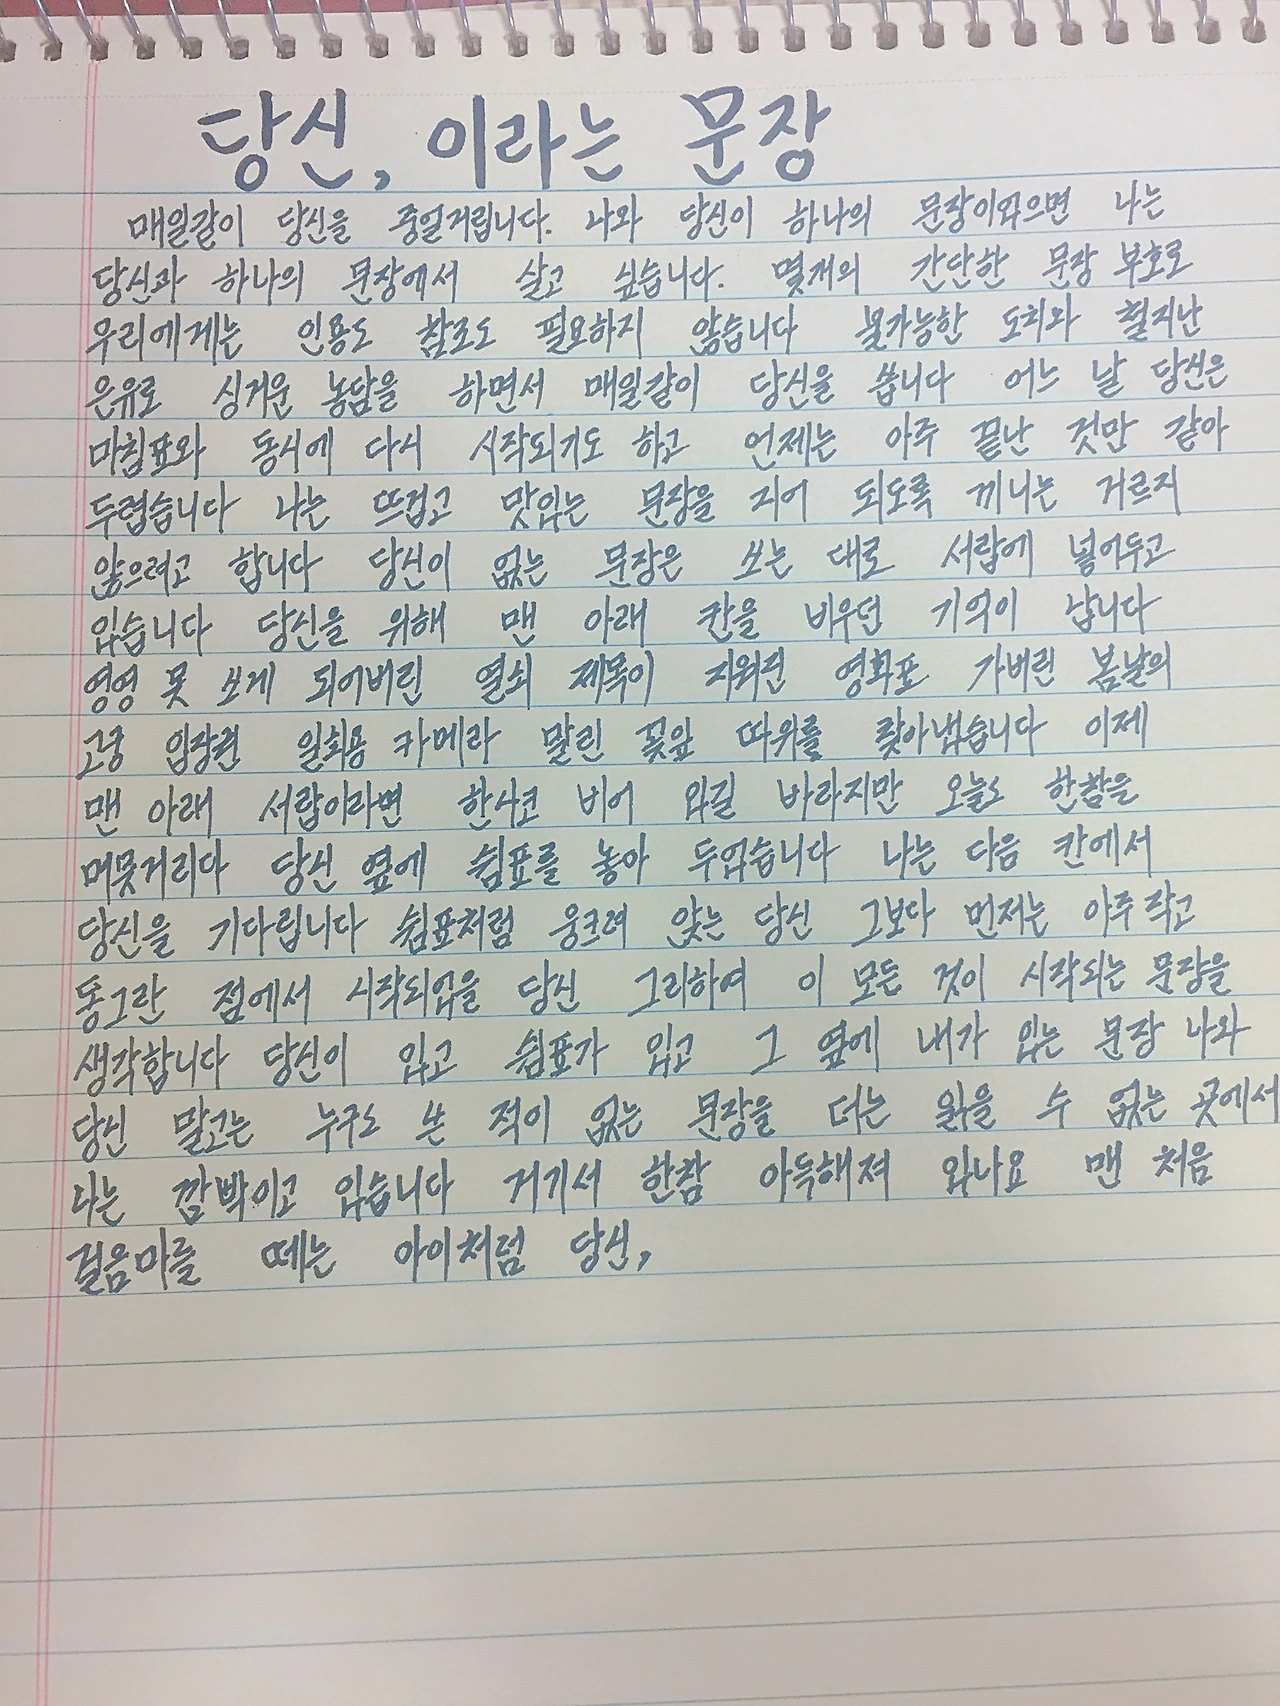 당신, 이라는 문장
매일같이 당신을 중얼거립니다. 나와 당신이 하나의 문장이었으면 나는
당신과 하나의 문장에서 살고 싶습니다. 몇개의 간단한 문장 부호로
우리에게는 인용도 참조도 필요하지 않습니다 불가능한 도치와 철지난
은유로 싱거운 농담을 하면서 매일같이 당신을 씁니다 어느 날 당신은
마침표와 동시에 다시 시작되기도 하고 언제는 아주 끝난 것만 같아
두렵습니다 나는 뜨겁고 맛있는 문장을 지어 되도록 끼니는 거르지
않으려고 합니다 당신이 없는 문장은 쓰는 대로 서랍에 넣어두고
있습니다 당신을 위해 맨 아래 칸을 비우던 기억이 납니다
영영 못 쓰게 되어버린 열쇠 제목이 지워진 영화표 가버린 봄날의
고궁 입장권 일회용 카메라 말린 꽃잎 따위를 찾아냅습니다 이제
맨 아래 서랍이라면 한사코 비어 있길 바라지만 오늘도 한참을
머뭇거리다 당신 옆에 쉼표를 놓아 두었습니다 나는 다음 칸에서
당신을 기다립니다 쉼표처럼 웅크려 앉는 당신 그보다 먼저는 아주 작고
동그란 점에서 시작되었을 당신 그리하여 이 모든 것이 시작되는 문장을
생각합니다 당신이 있고 쉼표가 있고 그 옆에 내가 있는 문장 나와
당신 말고는 누구도 쓴 적이 없는 문장을 더는 읽을 수 없는 곳에서
나는 깜박이고 있습니다 거기서 한참 아득해져 있나요 맨 처음
걸음마를 떼는 아이처럼 당신,